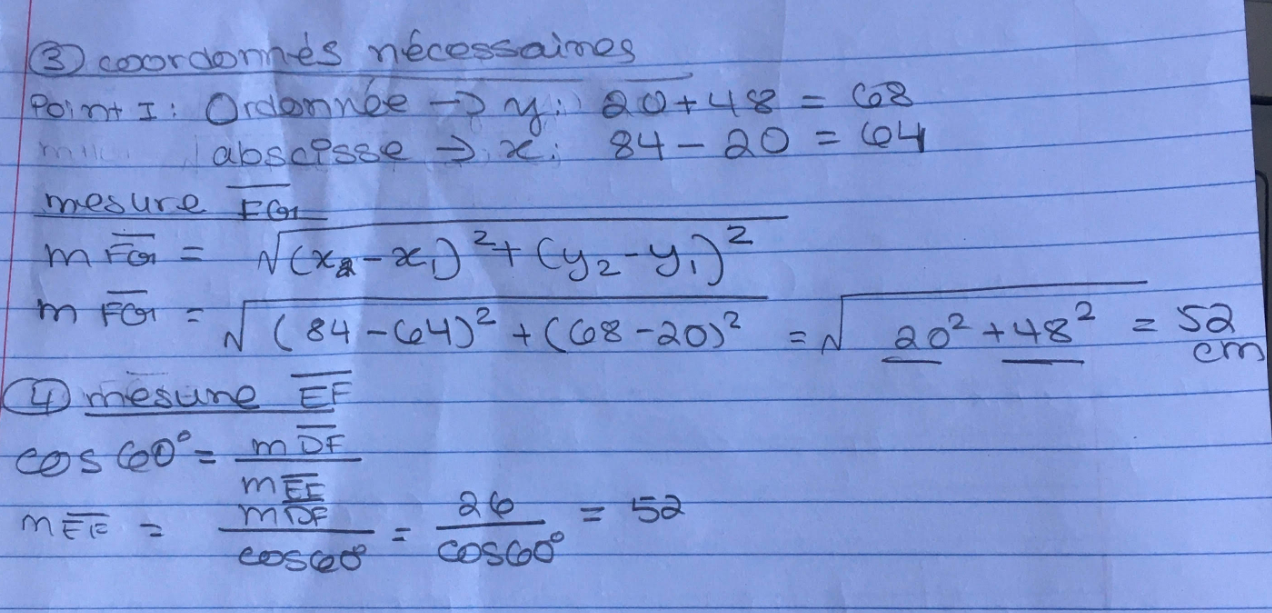 ③ coordonnés nécessaires
Point I : Ordonnée → y: 20+48 = 68
abscisse → x: 84 - 20 = 64
mesure F̅G̅
m F̅G̅ = √(x₂ - x₁)² + (y₂ - y₁)²
m F̅G̅ = √(84 - 64)² + (68 - 20)² = √20² + 48² = 52 cm
④ mesure E̅F̅
cos 60° = m D̅F̅ / m E̅F̅
m E̅F̅ = m D̅F̅ / cos 60° = 26 / cos 60° = 52